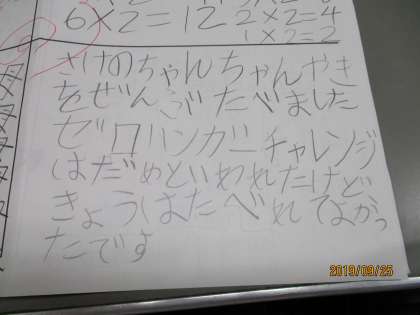 6×2=12 2×2=4
1×2=2
さけのちゃんちゃんやき
をぜんぶたべました
ゼロハンガーチャレンジ
はだめといわれたけど
きょうはたべれてよかっ
たです
2019/09/25